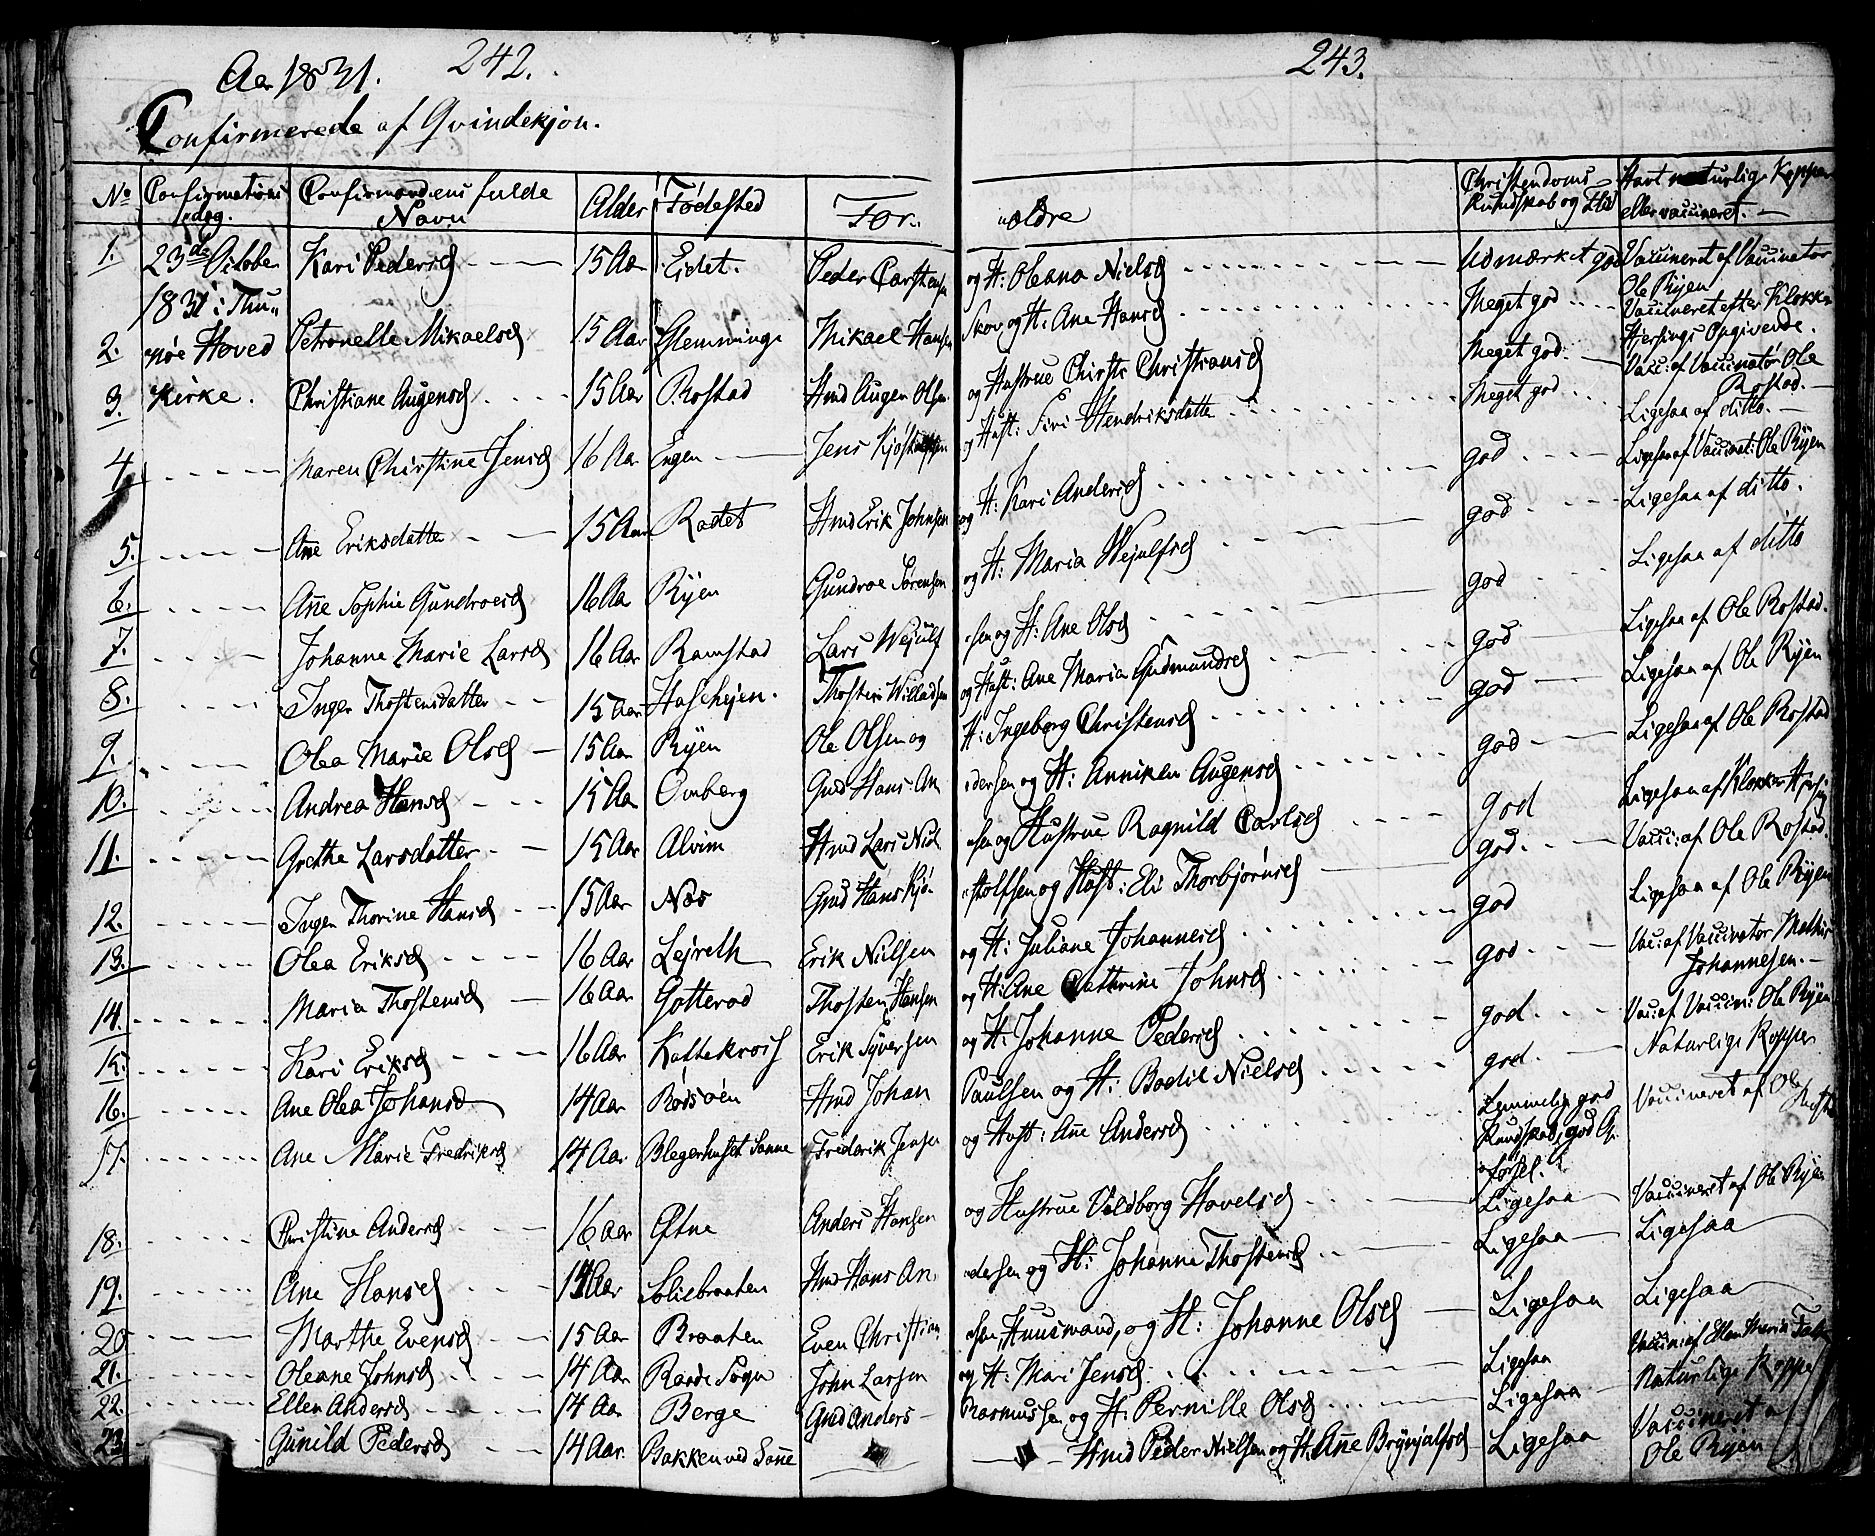 242.
Aar 1831.
Confirmerede af Qvindekjøn.
243.
No Confirmations dag. Confirmandens fulde Navn Alder Fødested For- ældre Christendoms Kundskab og Flid Havt naturlige Kopper eller vaccineret. -
1. 23de Octobe Kari Pedersd 15 Aar Eidet. Peder Carstensen og H: Oleana Nielsd Udmærket god Vaccineret af Vaccinator Ole Ryen
1831 i Thu-
2. nøe Hoved Petronelle Mikaelsd 15 Aar Glemminge Mikael Hansen Skov og H: Ane Hansd Meget god Vaccineret efter Klokker Hjersings Opgivende.
3. Kirke. Christiane Augensd 15 Aar Rostad Hmd Augen Olsen og Hustrue Chirsti Christiansd Meget god Vacc: af Vaccinatør Ole Rostad. -
4. Maren Chirstine Jensd 16 Aar Engen Jens og Hust: Siri Hendriksdatte Meget god Ligesaa af ditto. -
5. Ane Eriksdatte 15 Aar Rødet Hmd Erik Johnsen og H: Kari Andersd god Ligesaa af Vaccinat: Ole Ryen
6. Ane Sophie Gundroesd 16 Aa Ryen Gundroe Sørensen og H: Maria Wejulfsd god Ligesaa af ditto.
7. Johanne Marie Larsd 16 Aar Ramstad Lars Wejulf- -sen og H: Ane Olsd god Ligesaa af ditto
8. Inger Thostensdatter 15 Aar Haslehejen. Thosten Willadsen og Hust: Ane Maria Gudmundsd god Ligesaa af Ole Rostad.
9. Olea Marie Olsd 15 Aar Ryen Ole Olsen og H: Ingeborg Christensd god Ligesaa af Ole Ryen
10. Andrea Hansd 15 Aa Omberg Gmd Hans An- -dersen og H: Anniken Augensd god Ligesaa af Ole Rostad
11. Grethe Larsdatter 15 Aar Alvim Hmd Lars Niel- -sen og Hustrue Ragnild Carlsd god Ligesaa af Klokker Hjersing
12. Inger Thorine Hansd 15 Aar Næs Gmd Hans Kjø- -stolfsen og Hust: Eli Thorbjørnsd god. Vacci: af Ole Rostad.
13. Olea Eriksd 16 Aar Lejreth Erik Nielsen og H: Juliane Johannesd god Ligesaa af Ole Ryen
14. Maria Thostensd 16 Aar Gotterød Thosten Hansen og H: Ane Cathrine Johnsd god Vac: af Vaccinator Mathis Johannesen. -
15. Kari Eriksd 16 Aar Kattekrois Erik Syversen og H: Johanne Pedersd god Vac: af Vaccin: Ole Ryen
16. Ane Olea Johansd 14 Aar Rødsøen Hmd Johan Paulsen og H: Bodil Nielsd god Naturlige Kopper
17. Ane Marie Fredriksd 14 Aar Blegerhuset Sanne Frederik Jensen og Hust: Ane Andersd Temmelig god Kundskab, god Op- førsel. Vaccineret af Ole
18. Christine Andersd 16 Aar Øftne Anders Hansen og Hustrue Valdborg Havelsd Ligesaa Vaccineret af Ole Ryen
19. Ane Hansd 14 Aar Soliebraaten Hmd Hans An- -dersen og H: Johanne Thostensd Ligesaa Ligesaa
20 Marthe Evensd 15 Aar Braaten Even Christian- -sen, Huusmand, og H: Johanne Olsd Ligesaa Ligesaa
21. Oleane Johnsd 14 Aar Raade Sogn John Larsen og H: Mari Jensd Ligesaa Vaccin: af Ellen Maria
22. Ellen Andersd 14 Aar Berge Gmd Anders - Rasmussen og H: Pernille Olsd Ligesaa Naturlige Koppe
23 Gunild Pedersd 14 Aar. Bakken ved Sanne Hmd Peder Nielsen og H: Ane Brynjulfsd Ligesaa Vaccineret a Ole Ryen